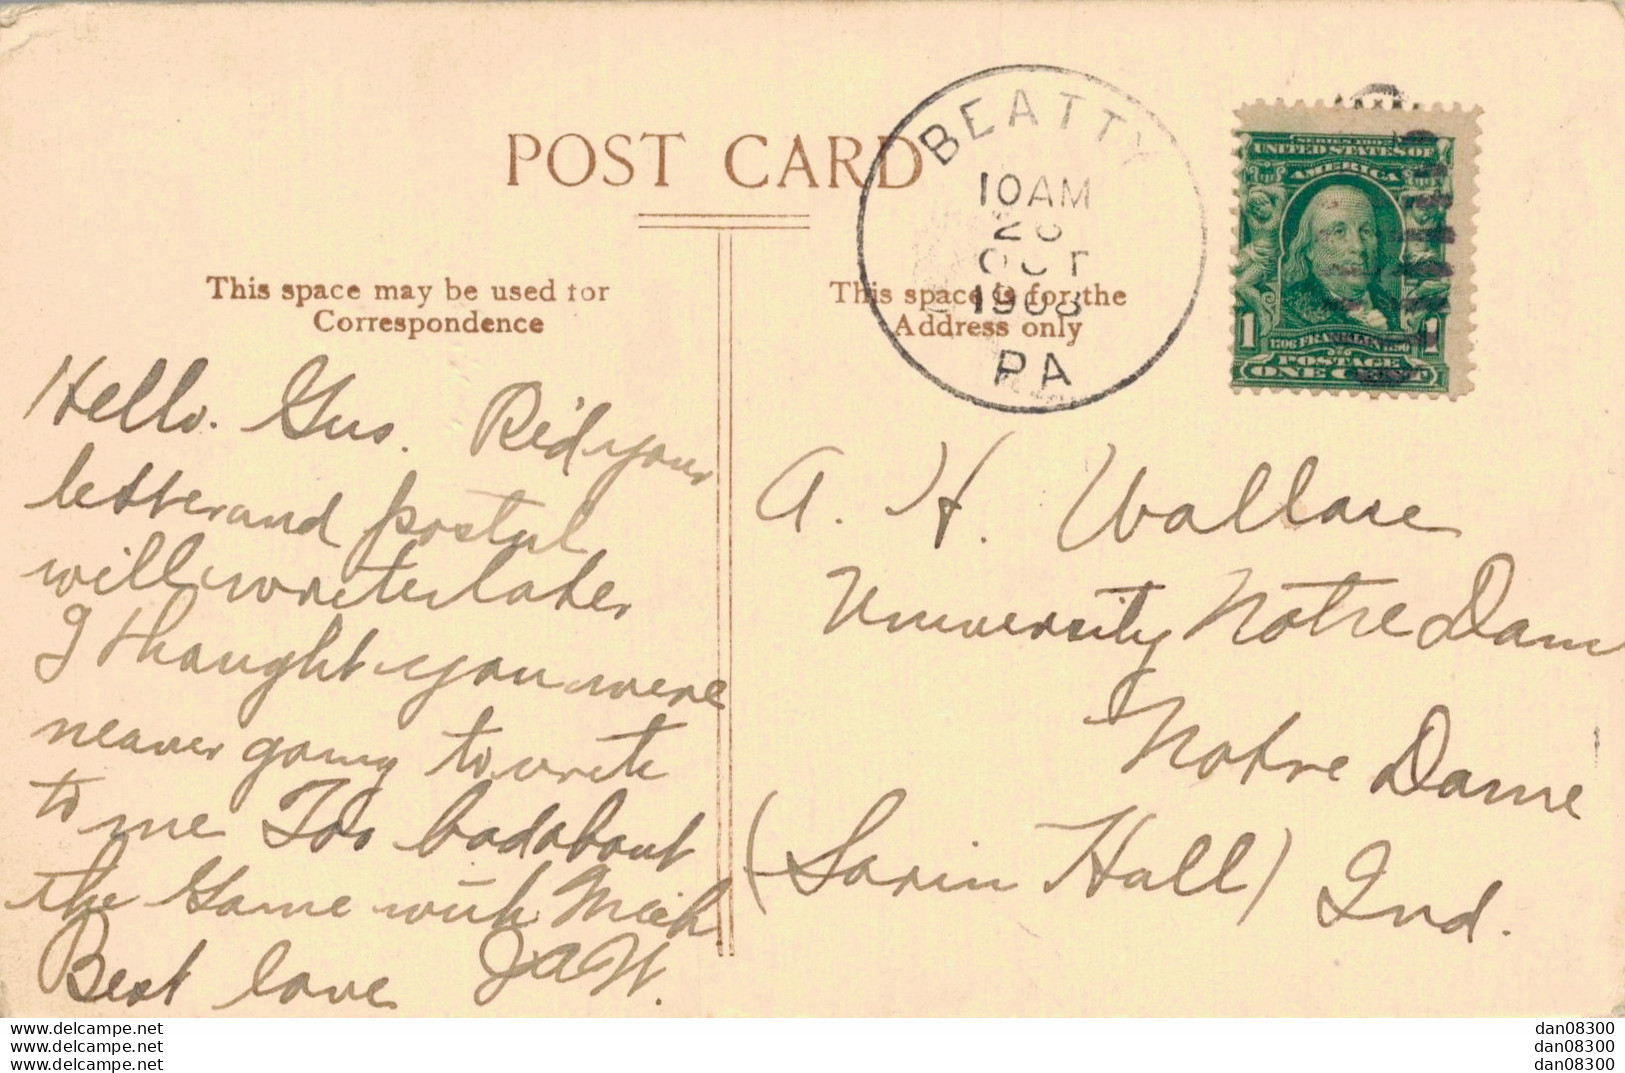 POST CARD
BEATTY
10AM
OCT
1908
PA
SERIES 1902
UNITED STATES OF
AMERICA
1 1
1706 FRANKLIN 1790
POSTAGE
ONE CENT
This space may be used for
Correspondence
This space is for the
Address only
Hello. Gus. Rec'd your
letter and postal
will write later
I thought you were
neaver going to write
to me Too bad about
the Game with Mich
Best love JAW.
A. H. Wallace
University Notre Dam
Notre Dame
(Sorin Hall) Ind.
www.delcampe.net
www.delcampe.net
www.delcampe.net
dan08300
dan08300
dan08300